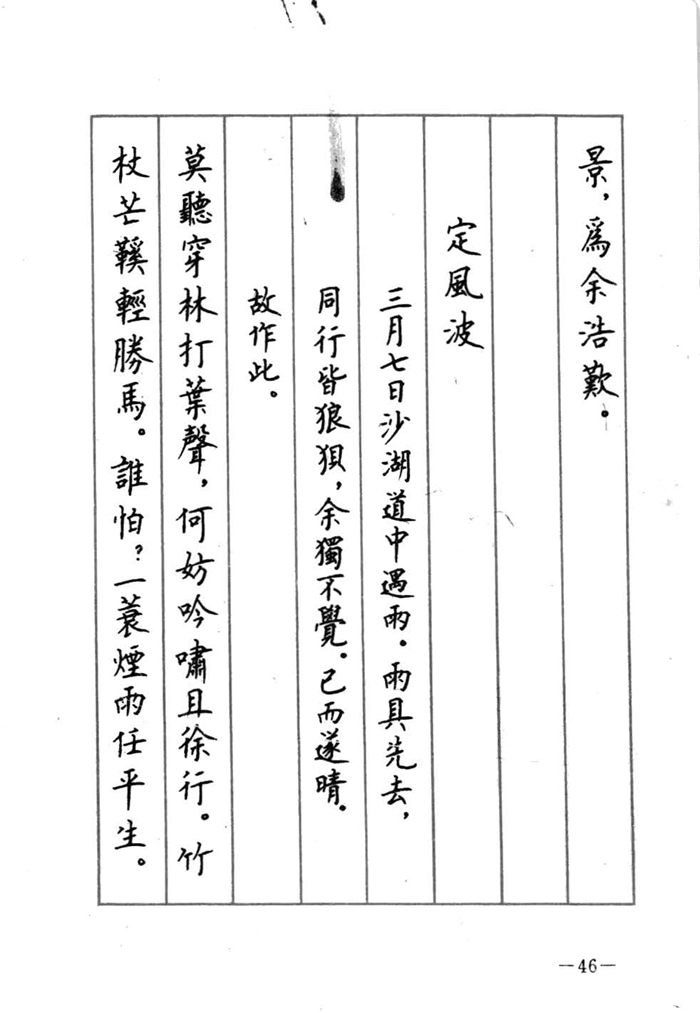 景，爲余浩歎。
定風波
三月七日沙湖道中遇雨。雨具先去，
同行皆狼狽，余獨不覺。已而遂晴。
故作此。
莫聽穿林打葉聲，何妨吟嘯且徐行。竹
杖芒鞵輕勝馬。誰怕？一蓑煙雨任平生。
—46—